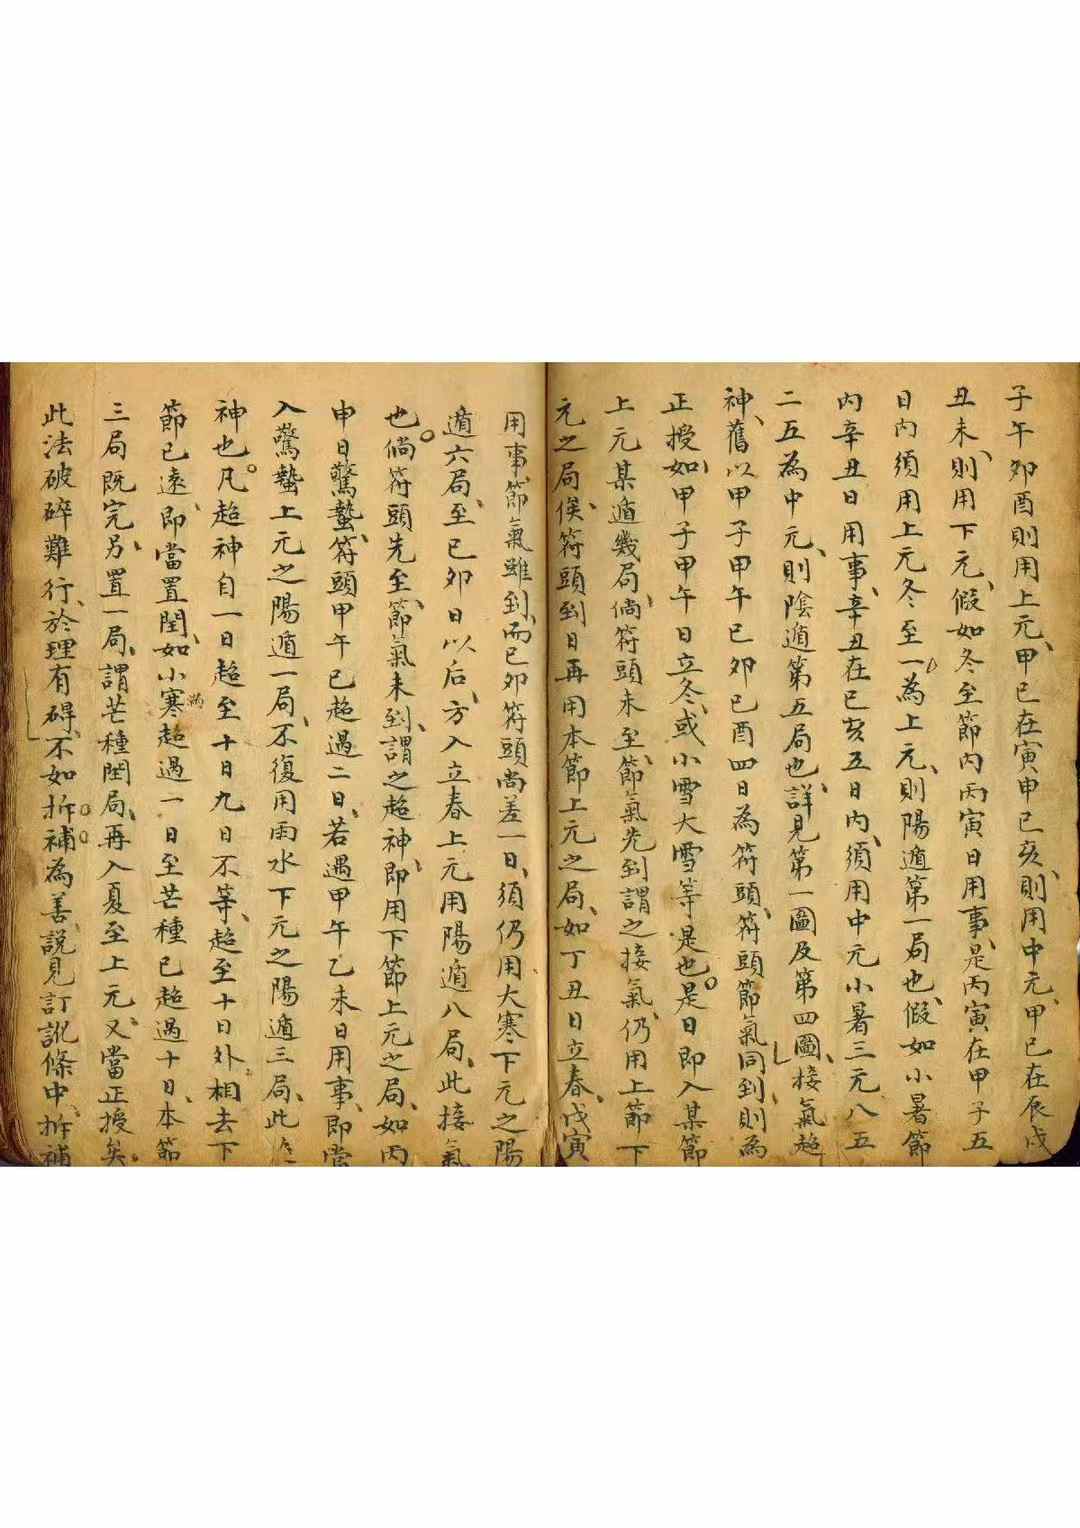 子午卯酉則用上元、甲已在寅申已亥、則用中元、甲已在辰戌
丑未、則用下元、假如冬至節内丙寅日用事、是丙寅在甲子五
日内須用上元冬至一為上元、則陽遁第一局也、假如小暑節
内辛丑日用事、辛丑在已亥五日内、須用中元小暑三元八五
二五為中元、則陰遁第五局也、詳見第一圖及第四圖、接氣趂
神、舊以甲子甲午已卯已酉四日為符頭、符頭節氣同到、則為
正授、如甲子甲午日立冬、或小雪大雪等是也。是日即入某節
上元某遁幾局、倘符頭未至、節氣先到謂之接氣、仍用上節下
元之局、俟符頭到日再用本節上元之局、如丁丑日立春、戊寅
用事、節氣雖到、而已卯符頭尚差一日、須仍用大寒下元之陽
遁六局、至已卯日以后、方入立春上元用陽遁八局、此接氣
也。倘符頭先至、節氣未到、謂之趂神、即用下節上元之局、如丙
申日驚蟄、符頭甲午已趂過二日、若遇甲午乙未日用事、即當
入驚蟄上元之陽遁一局、不復用雨水下元之陽遁三局、此
神也。凡趂神自一日趂至十日九日不等、趂至十日外相去下
節已遠、即當置閏、如小寒趂過一日至芒種已趂過十日、本節
三局既完、另置一局、謂芒種閏局、再入夏至上元、又當正授矣。
此法破碎難行、於理有碍、不如拆補為善、說見訂訛條中、拆補